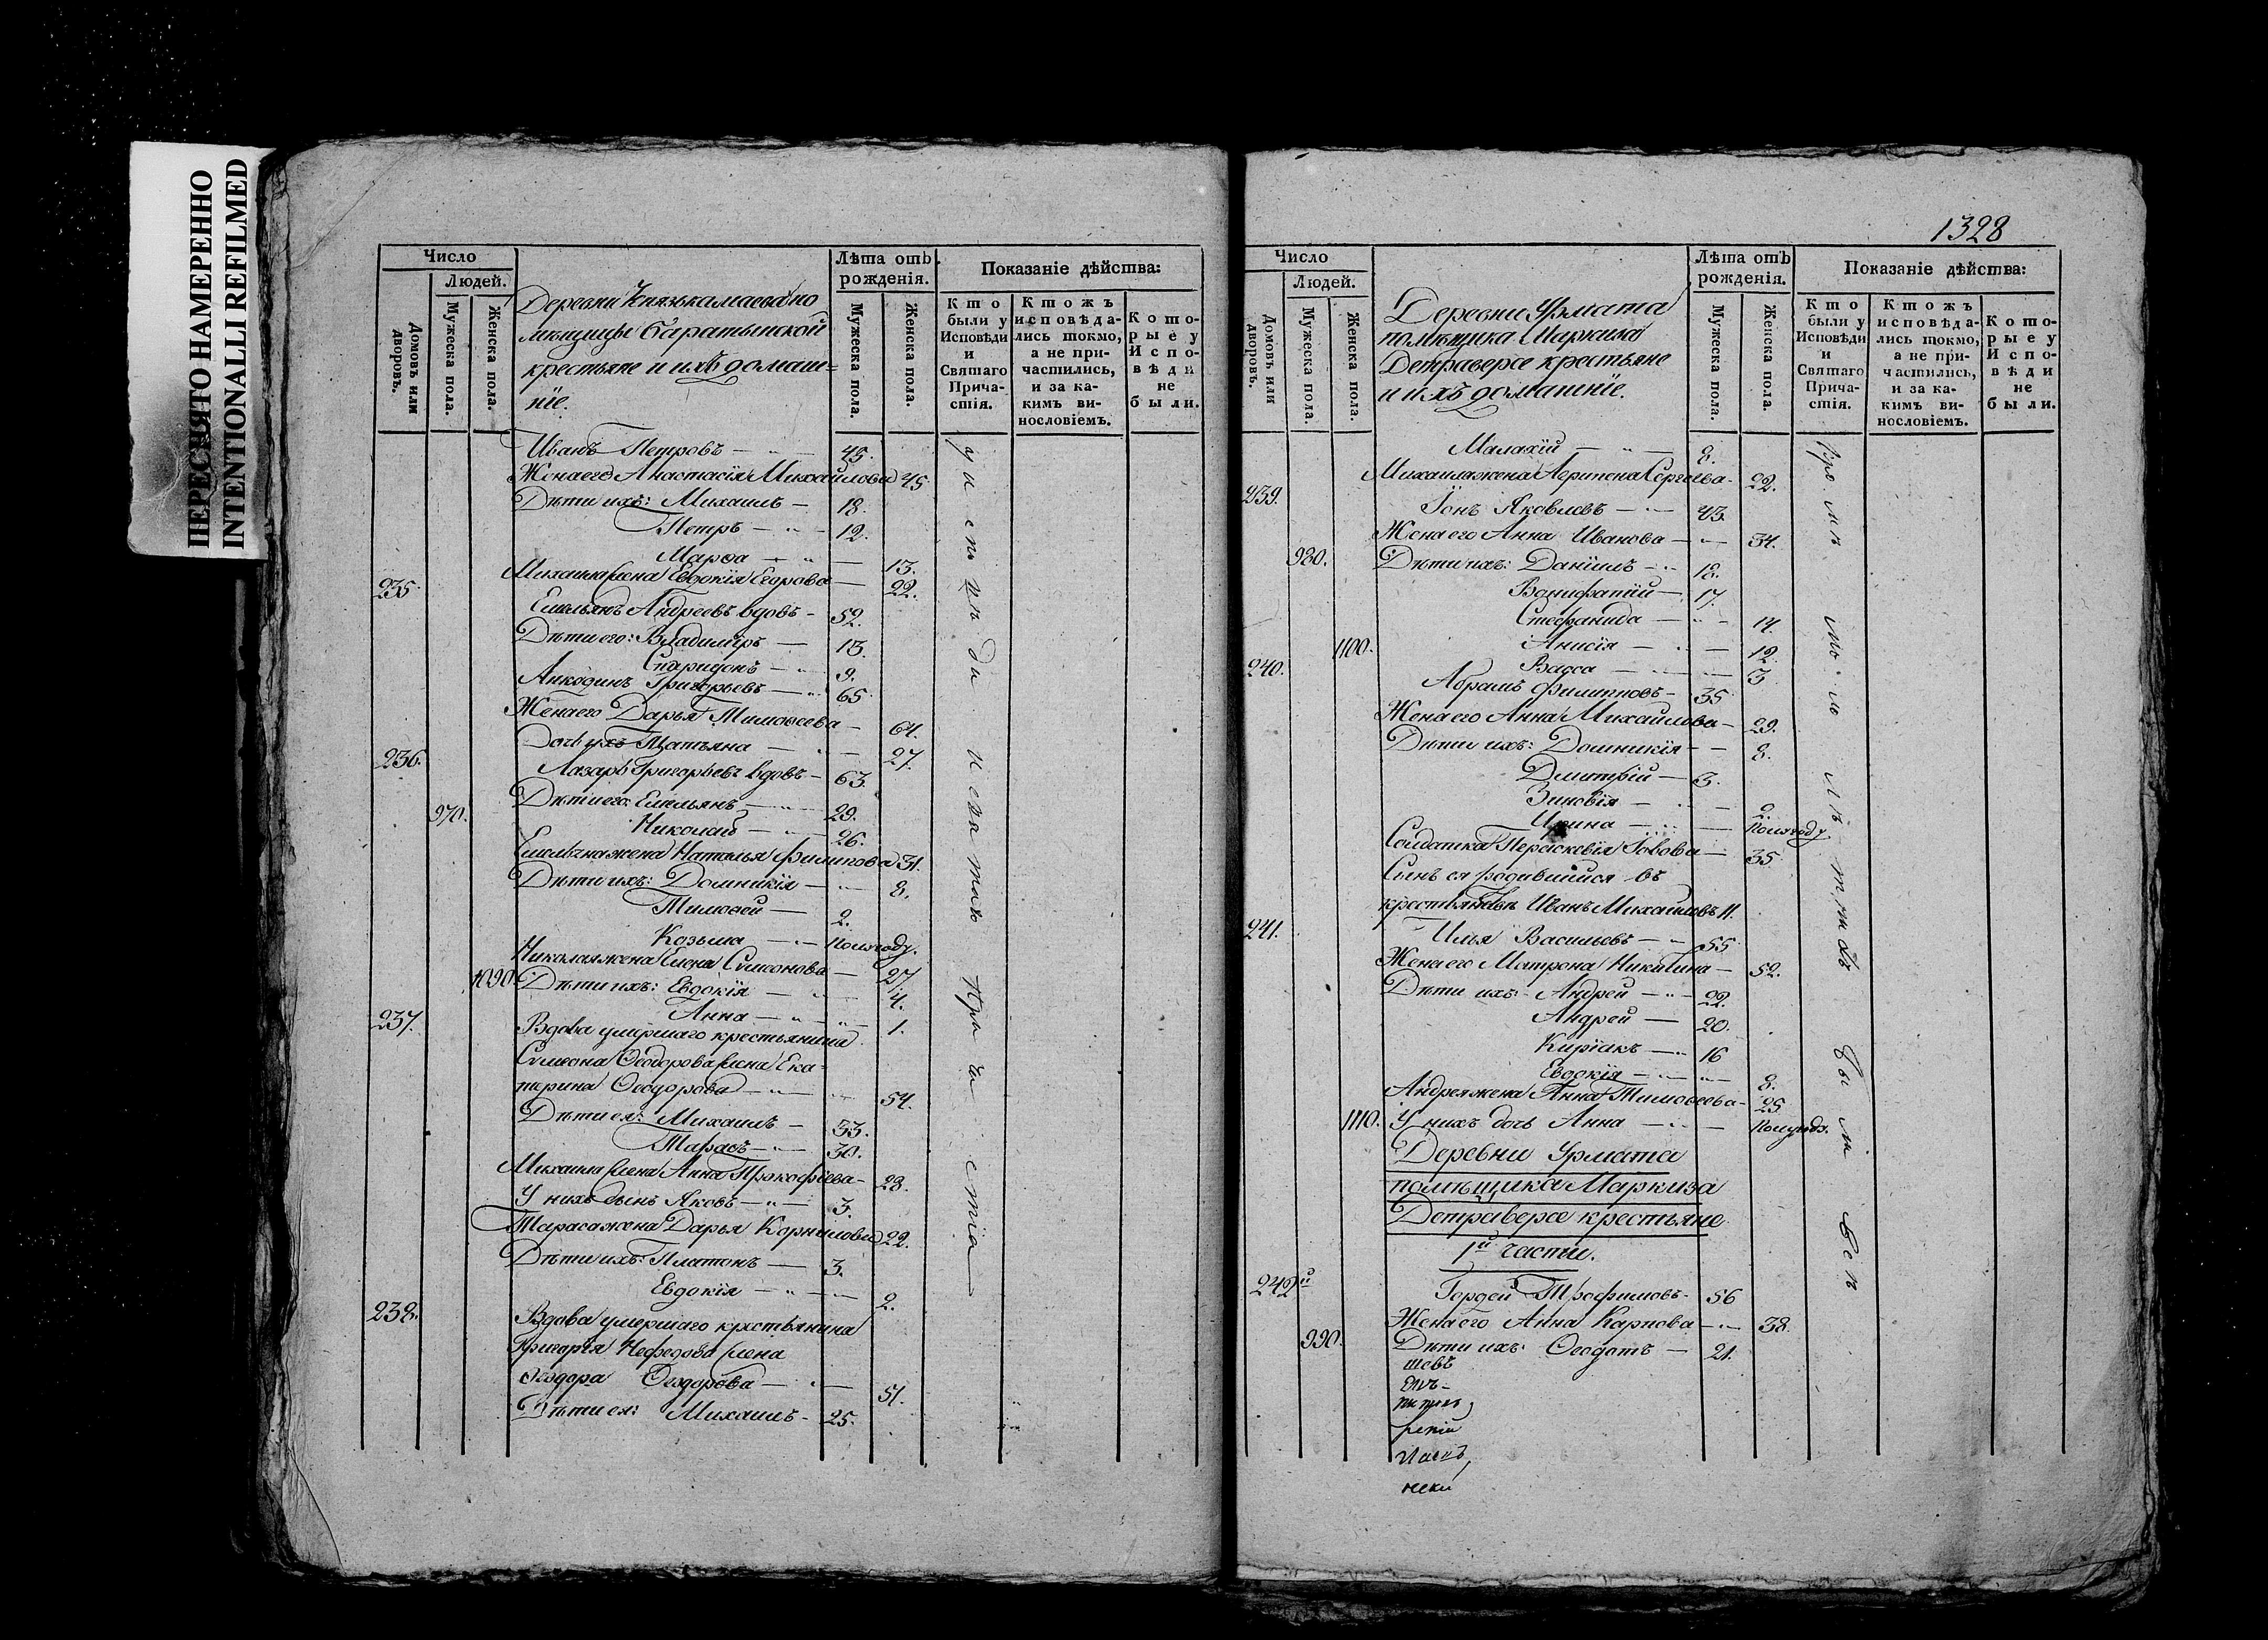 ПЕРЕСНЯТО НАМЕРЕННО
INTENTIONALLI REFILMED
Число
Людей.
Домовъ или дворовъ.
Мужеска пола.
Женска пола.
Деревни Князькамаева по
мѣщицы Баратынской
крестьяне и ихъ домаш=
ніе.
Лѣта отъ рожденія.
Мужеска пола.
Женска пола.
Показаніе дѣйства:
Кто были у Исповѣди и Святаго Причастія.
Ктожъ исповѣдались токмо, а не причастились, и за какимъ винословіемъ.
Которые у Исповѣди не были.
Иванъ Петровъ — 45.
Жена его Анастасія Михайлова 45
Дѣти ихъ: Михаилъ — 18.
Петръ — 12.
Марѳа — 13.
Михаила жена Евдокія Егорова — 22.
235.
Емельянъ Андреевъ вдовъ — 52.
Дѣти его: Владимiръ — 13.
Спиридонъ — 9.
Григорьевъ — 65
Жена его Дарья Тимоѳеева — 64.
Дочь ихъ Татьяна — 27.
236.
Лазарь Григорьевъ вдовъ — 63.
970. Дѣти его: Емельянъ — 29.
Николай — 26.
жена Наталья Филипова 31.
Дѣти ихъ: Домникія — 8.
Тимоѳей — 2.
Козьма — полугоду.
Николая жена Елена Симеонова — 27
1090. Дѣти ихъ: Евдокія — 4.
Анна — 1.
237.
Вдова умершаго крестьянина
Симеона Ѳеодорова жена Ека=
терина Ѳеодорова — 54.
Дѣти ея: Михаилъ — 33.
Тарасъ — 30.
Михаила жена Анна Прокофіева — 28.
У нихъ сынъ Яковъ — 3.
Тараса жена Дарья Корнилова 22.
Дѣти ихъ: Платонъ — 3.
Евдокія — 2.
238.
Вдова умершаго крестьянина
Григорія Нефедова жена
Ѳеодора Ѳеодорова — 51.
Дѣти ея: Михаилъ — 25.
причастія
1328
Число
Людей.
Домовъ или дворовъ.
Мужеска пола.
Женска пола.
Деревни Урмата
помѣщика Маркиза
Детраверсе крестьяне
и ихъ домашніе.
Лѣта отъ рожденія.
Мужеска пола.
Женска пола.
Показаніе дѣйства:
Кто были у Исповѣди и Святаго Причастія.
Ктожъ исповѣдались токмо, а не причастились, и за какимъ винословіемъ.
Которые у Исповѣди не были.
Малахій — 8.
Михаила жена Сергеева — 22.
239.
Іонъ Яковлевъ — 43.
Жена его Анна Иванова — 34.
980. Дѣти ихъ: Даніилъ — 18.
Вонифатій — 17.
Стефанида — 14.
1100. Анисія — 12.
Васса — 3
240.
Абрамъ Филиповъ — 35
Жена его Анна Михайлова — 29.
Дѣти ихъ: Домникія — 8.
Дмитрій — 3.
Зиновія — 2.
Ирина — полугоду.
Солдатка Параскевія Іовова — 35
Сынъ ея родившійся въ
крестьянствѣ Иванъ Михайловъ 11.
241.
Илья Васильевъ — 55
Жена его Матрона Никитина — 52.
Дѣти ихъ: Андрей — 22.
Андрей — 20.
Киріакъ — 16
Евдокія — 8.
Андрея жена Анна Тимоѳеева — 25
1110. У нихъ дочь Анна — полугода.
Деревни Урмата
помѣщика Маркиза
Детраверсе крестьяне
1й части.
242й
Гордей Трофимовъ — 56
Жена его Анна Карпова — 38.
990. Дѣти ихъ: Ѳеодотъ — 21.